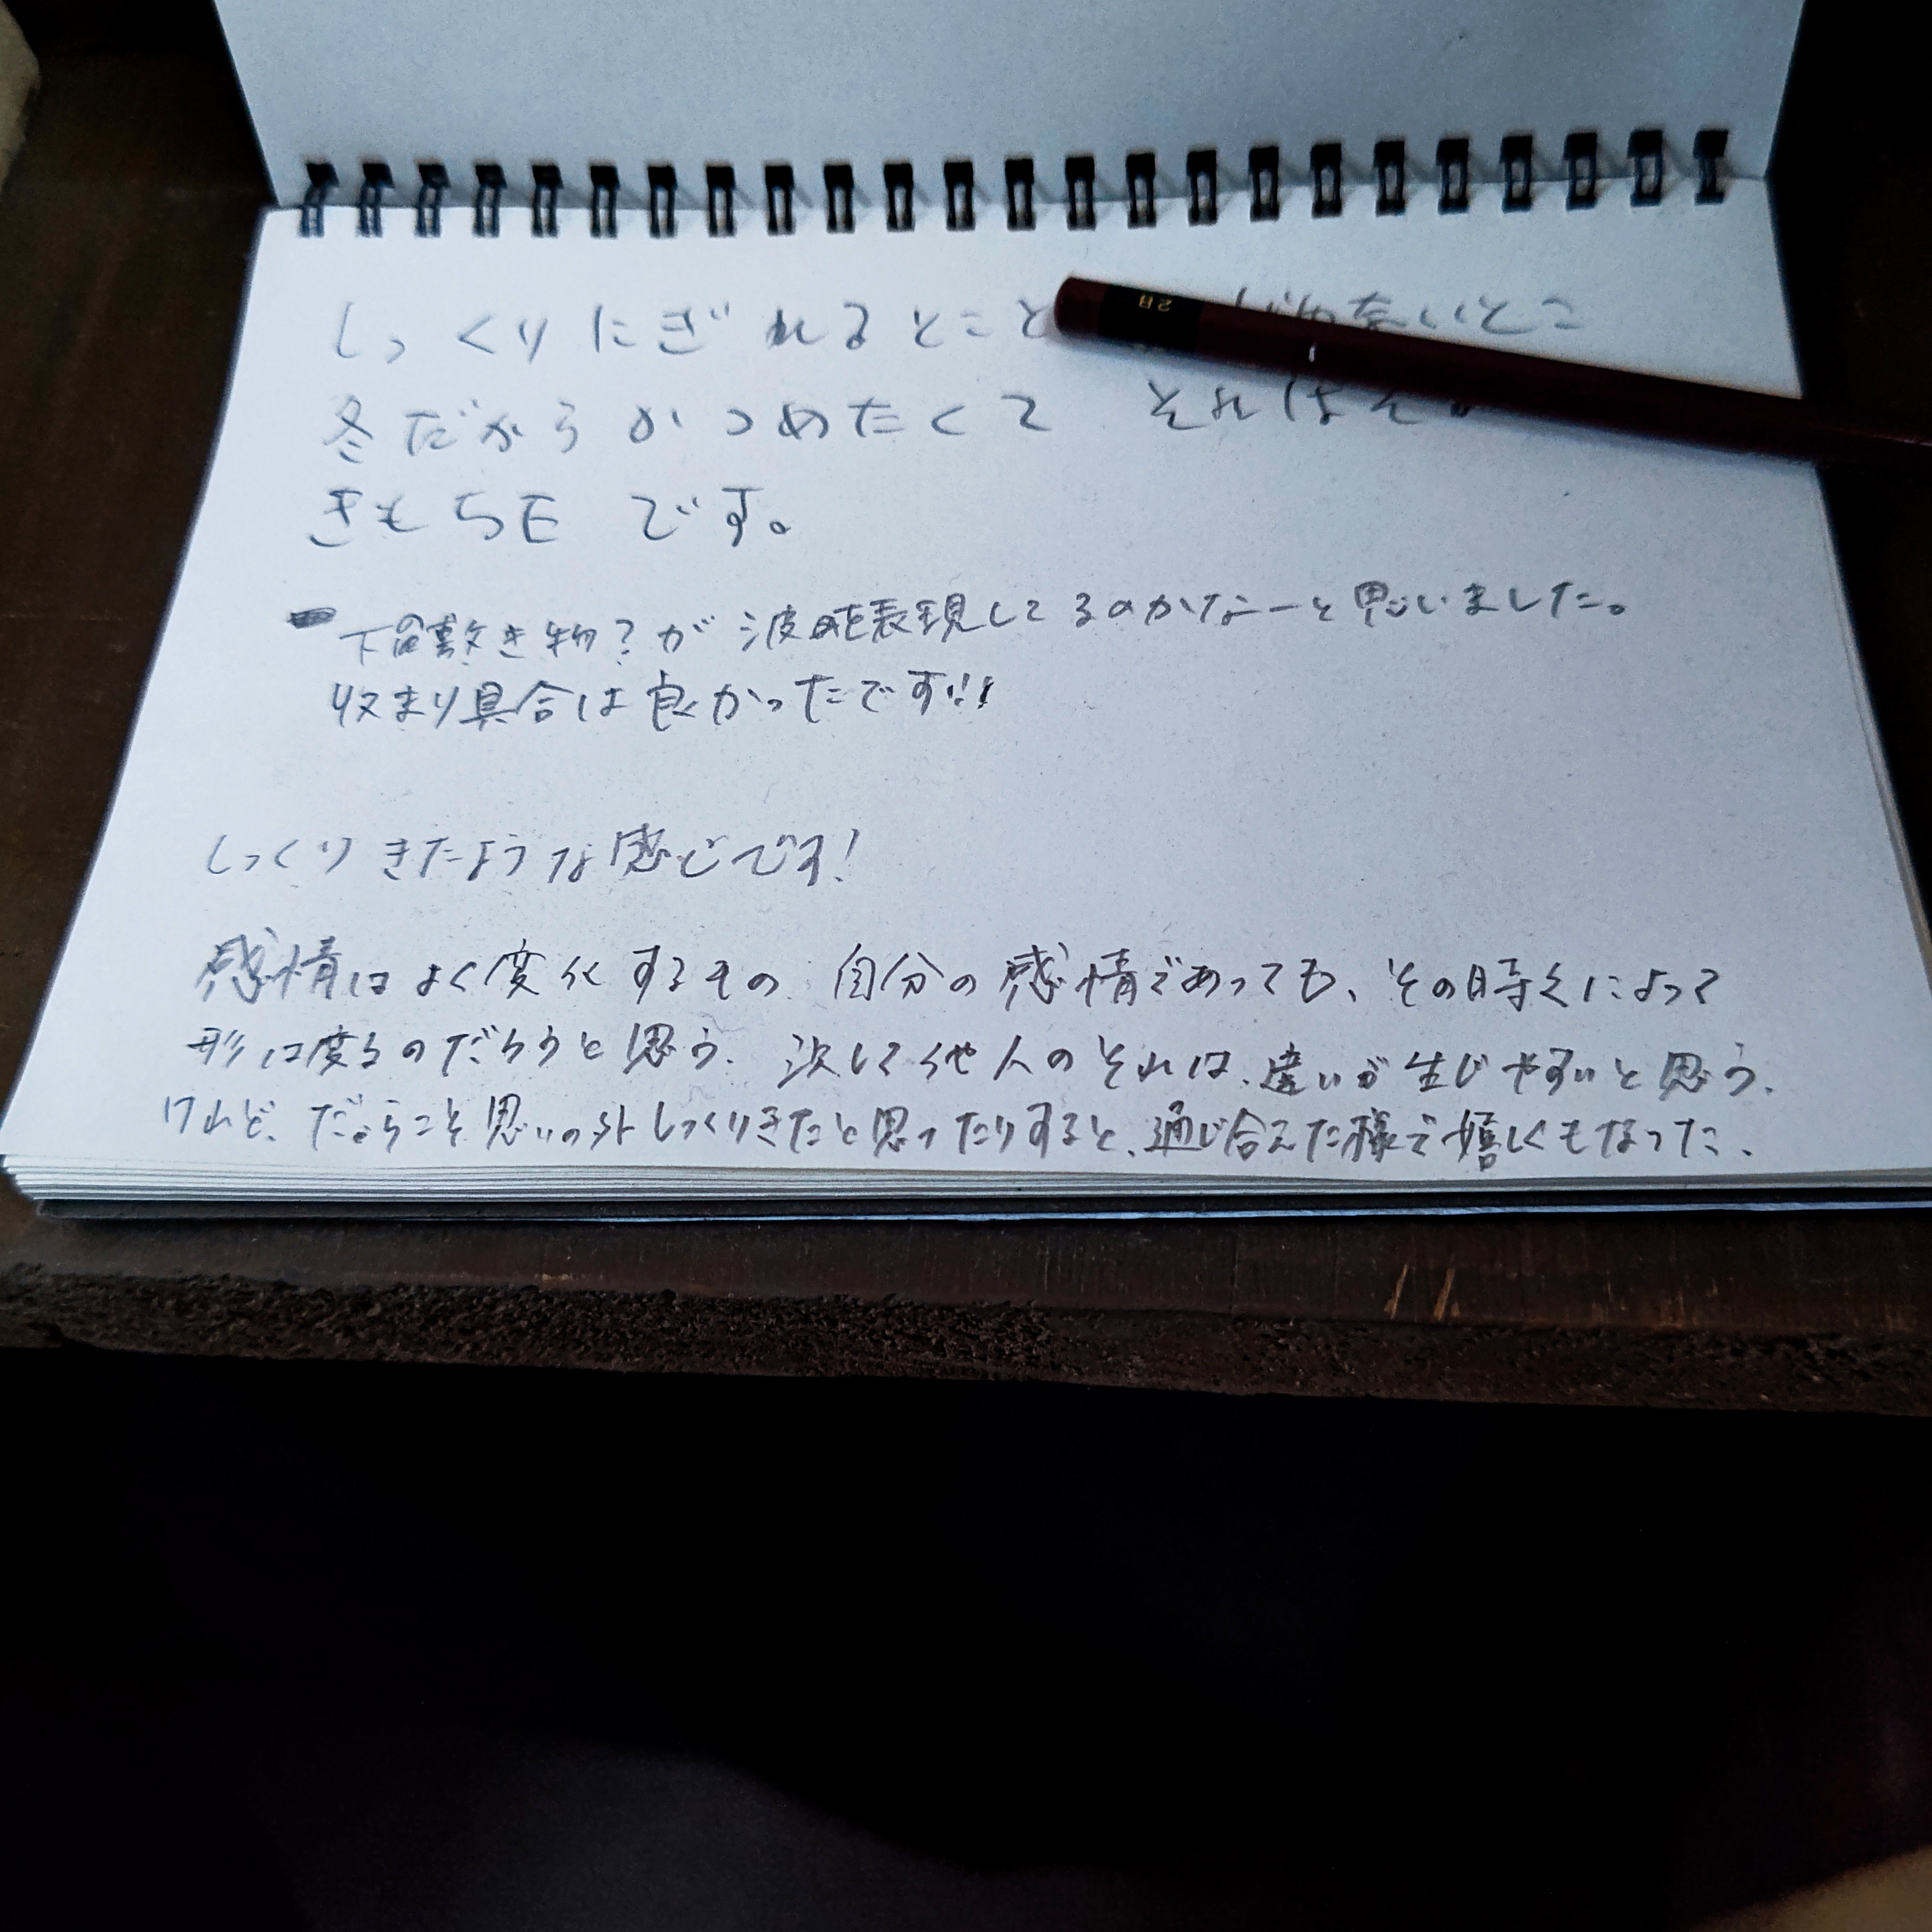 しっくりにぎれるとこと じゃないとこ
2B
冬だから つめたくて それはそ
きもちE です。
下の敷き物?が 波を表現してるのかなーと思いました。
収まり具合は良かったです!!
しっくりきたような感じです!
感情はよく変化するもの 自分の感情であっても、その時々によって
形は変るのだろうと思う. 決して他人のそれは、違いが生じやすいと思う.
けれど、だからこそ思いの外しっくりきたと思ったりすると、通じ合えた様で嬉しくもなった、